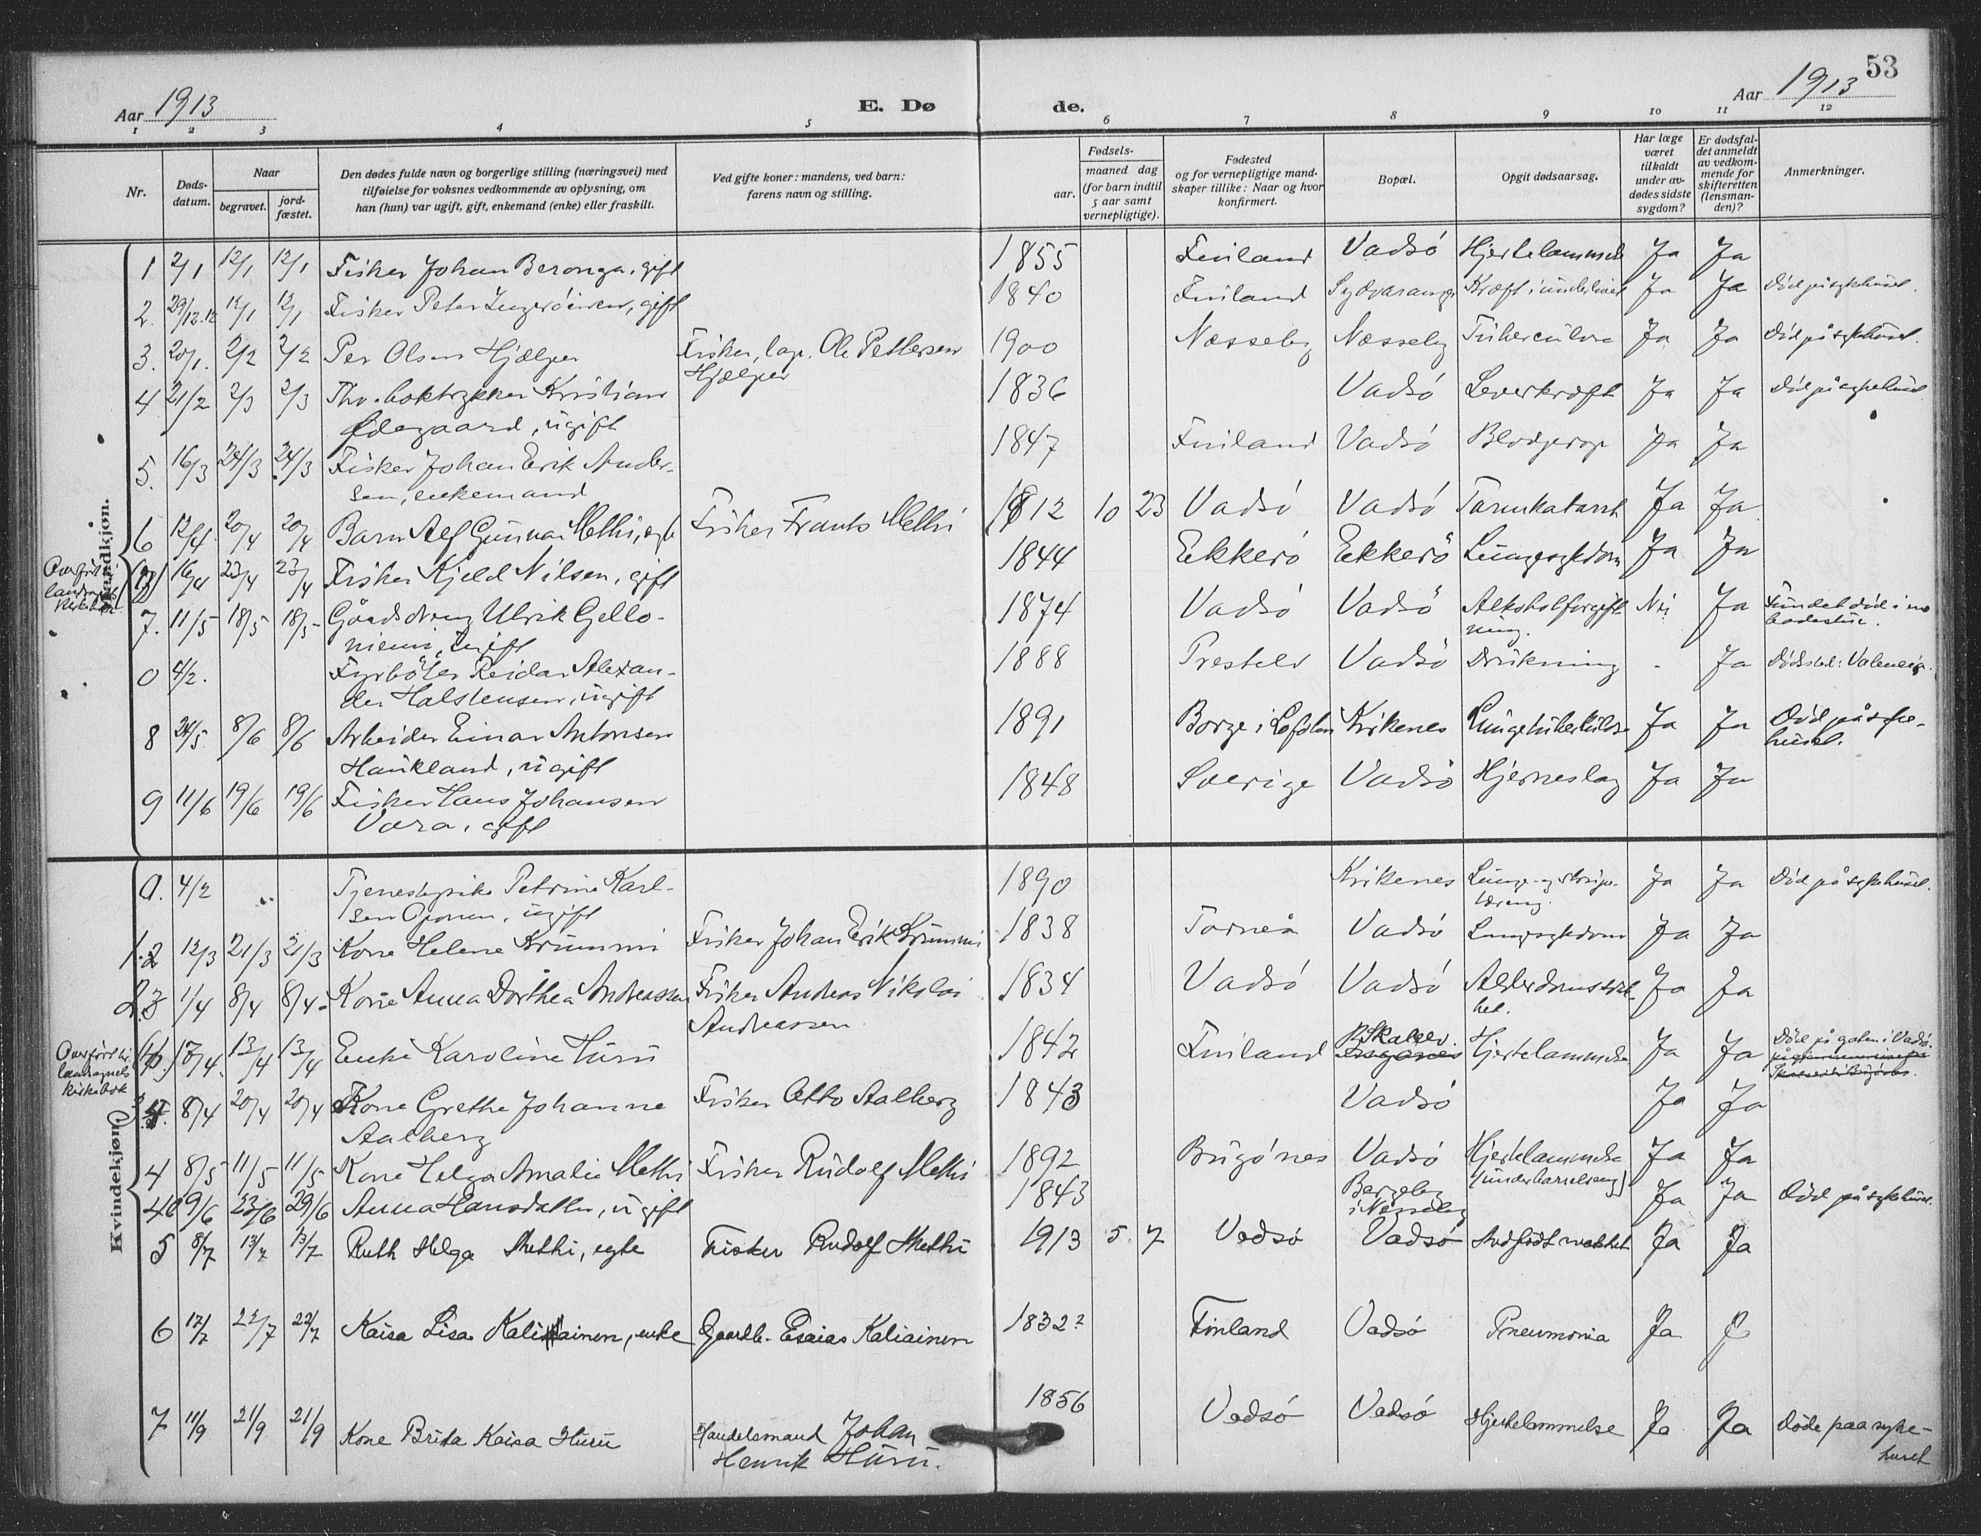 53
Aar 1913 E. Dø de. Aar 1913
1 2 3 4 5 6 7 8 9 10 11 12
Nr.
Døds-
datum.
Naar
begravet.
jord-
fæstet.
Den dødes fulde navn og borgerlige stilling (næringsvei) med
tilføielse for voksnes vedkommende av oplysning, om
han (hun) var ugift, gift, enkemand (enke) eller fraskilt.
Ved gifte koner: mandens, ved barn:
farens navn og stilling.
Fødsels-
aar.
maaned dag
(for barn indtil
5 aar samt
vernepligtige).
Fødested
og for vernepligtige mand-
skaper tillike: Naar og hvor
konfirmert.
Bopæl.
Opgit dødsaarsag.
Har læge
været
tilkaldt
under av-
dødes sidste
sygdom?
Er dødsfal-
det anmeldt
av vedkom-
mende for
skifteretten
(lensman-
den)?
Anmerkninger.
Mandkjøn.
1 2/1 12/1 12/1 Fisker Johan Beronga, gift 1855 Finland Vadsö Hjertelammelse Ja Ja
2. 29/12.12 12/1 12/1 Fisker Peter, gift 1840 Finland Sydvaranger Kræft i underlivet Ja Ja Död på sykehuset.
3. 20/1. 2/2 2/2 Per Olsen Hjælper Fisker, lap. Ole Pettersen
Hjælper 1900 Næsseby Næsseby Tuberculose Ja Ja Död på sykehuset.
4 21/2 2/3 2/3 Fhv. boktrykker Kristian
Ødegaard, ugift 1836 Vadsö Leverkræft Ja Ja Död på sykehuset
5. 16/3 24/3 24/3 Fisker Johan Erik Ander-
sen, enkemand 1847 Finland Vadsö Ja Ja
6 12/4 20/4 20/4 Barn Alf Gunnar Methi, egte Fisker Frants Methi 1912 10 23 Vadsö Vadsö Tarmkatarrh Ja Ja
Overført
landsognets
kirkebok
(7) 16/4 23/4 23/4 Fisker Kjeld Nilsen, gift 1844 Ekkerö Ekkerö Lungesykdom Ja Ja
7. 11/5 18/5 18/5 Gårdsdreng Ulrik Gello-
niemi, ugift 1874 Vadsö Vadsö Alkoholforgift-
ning. Nei Ja Fundet död i en
badestue.
0 4/2. Fyrböter Reidar Alexan-
der Halstensen, ugift 1888 Prestelv Vadsö Drukning - Ja Dödssted: Valencia.
8 24/5 8/6 8/6 Arbeider Einar Antonsen
Haukland, ugift 1891 Borge i Lofoten Kirkenes Lungetuberkulose Ja Ja Död på syke-
huset.
9 11/6 19/6 19/6 Fisker Hans Johansen
Vara, gift 1848 Sverige Vadsö Hjerneslag Ja Ja
Kvindekjøn.
0. 4/2 Tjenestepike Petrine Karl-
sen Oponen, ugift 1890 Kirkenes Lunge- og strupe-
tæring. Ja Ja Död på sykehuset.
1. 2 12/3 21/3 21/3 Kone Helene Krummi Fisker Johan Erik Krummi 1838 Torneå Vadsö Lungesykdom Ja Ja
2. 3 1/4 8/4 8/4 Kone Anna Dorthea Andreassen Fisker Andreas Nikolai
Andreassen 1834 Vadsö Vadsö Alderdomssvak-
het. Ja Ja
Overført til
landsognets
kirkebok
/4. 13/4 13/4 Enke Karoline Huru 1842 Finland Skallelv. Hjertelammelse Ja Ja Död på gaten i Vadsö.
3. 8/4 20/4 20/4 Kone Grethe Johanne
Aalberg Fisker Otto Aalberg 1843 Vadsö Ja Ja
4 8/5 11/5 11/5 Kone Helga Amalie Methi Fisker Rudolf Methi 1892 Bugönes Vadsö Hjertelammelse
(under barselseng) Ja Ja
9/6 23/6 29/6 Anna Hansdatter, ugift 1843 Bergeby
i Nesseby Ja Ja Död på sykehuset.
5 8/7 13/7 13/7 Ruth Helga Methi, egte Fisker Rudolf Methi 1913 5. 7 Vadsø Vadsø Medfødt svakhet Ja Ja
6 17/7 22/7 22/7 Kaisa Lisa Kaliainen, enke Gaardb. Esaias Kaliainen 1832? Finland Vadsø Pneumonia Ja J
7 11/9 21/9 21/9 Kone Brita Kaisa Huru Handelsmand Johan
Henrik Huru. 1856 Vadsø Vadsø Hjertelammelse Ja Ja Døde paa syke-
huset